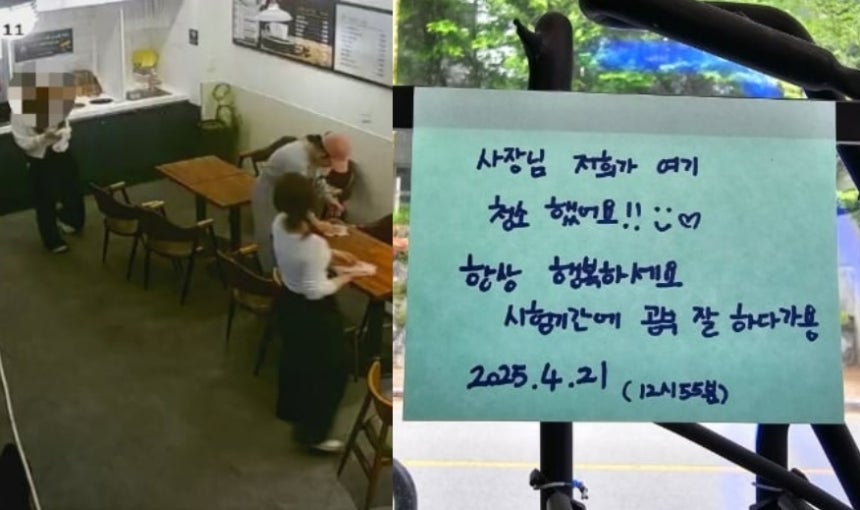 11
사장님 저희가 여기
청소 했어요!! :) ♡
항상 행복하세요
시험기간에 공부 잘 하다가용
2025.4.21 (12시55분)